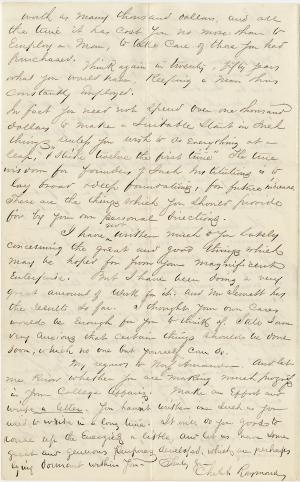 worth as many thousand dollars, and all
the time it has cost you no more than to
Employ a Man, to take care of that you had
Purchased. Think again in twenty, fifty years
what you would have. Keeping a man thus
Constantly Employed.
In fact you need not spend over one thousand
dollars to make a Suitable Start in Such
things, unless you wish to do Everything at a
leap, the first time. The true
wisdom for founders of Such Institutions is to
lay broad & deep foundations, for future increase
These are the things which you should provide
for by your own personal directions.
I have not written much to you lately
concerning the great and good things which
may be hoped for from your magnificent
Enterprise. But I have been doing a very
great amount of work for it. and Mr Jewett has
the results so far. I thought your own Cares
would be enough for you to think of. Still I am
very anxious that certain things should be done
soon, which no one but yourself can do.
My regards to Mrs. And let
me know whether you are making much progress
in your College affairs. Make an effort and
write a letter. You havent written one such as you
used to write in a long time. It will do you good to
rouse up the Energies a little, and let us have some
great and generous purposes developed, which are perhaps
lying dormant within you. Truly Yrs
Raymond